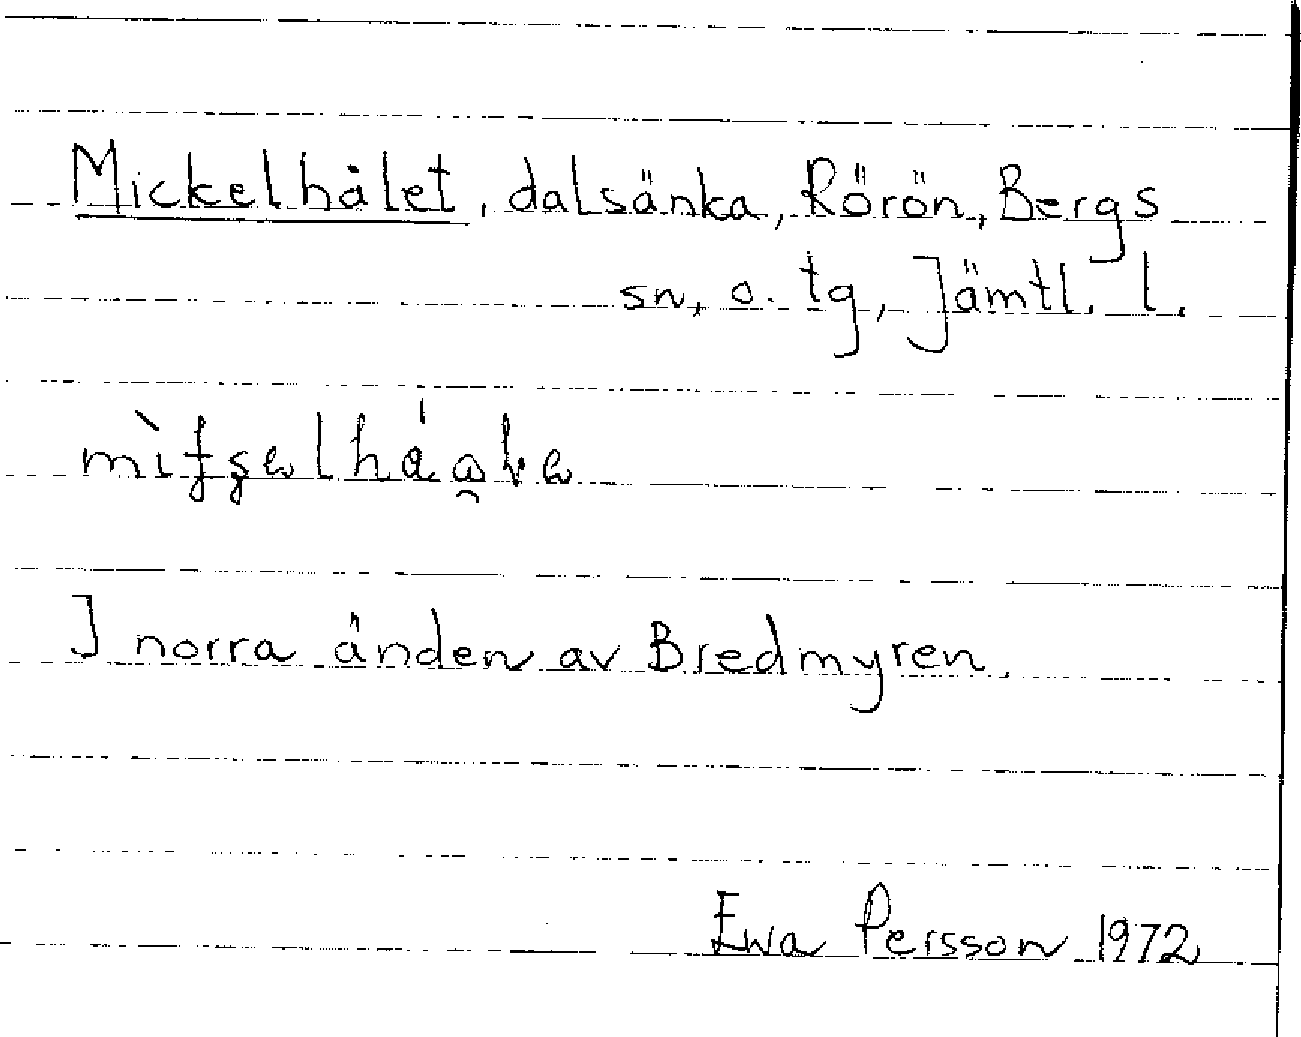 Mickelhålet, dalsänka, Rörön, Bergs
sn, o. tg, Jämtl. l.
I norra änden av Bredmyren.
Ewa Persson 1972